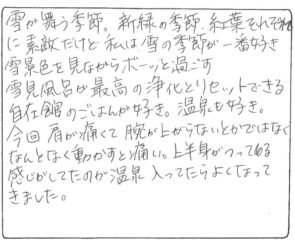 雪が舞う季節。新緑の季節 紅葉それぞれ
に素敵だけど 私は雪の季節が一番好き
雪景色を見ながらボーッと過ごす
雪見風呂が最高の浄化とリセットできる
自在館のごはんが好き。温泉も好き。
今回 肩が痛くて 腕が上がらないとかではなく
なんとなく動かすと痛い。上半身がつってる
感じがしてたのが温泉 入ってたらよくなって
きました。